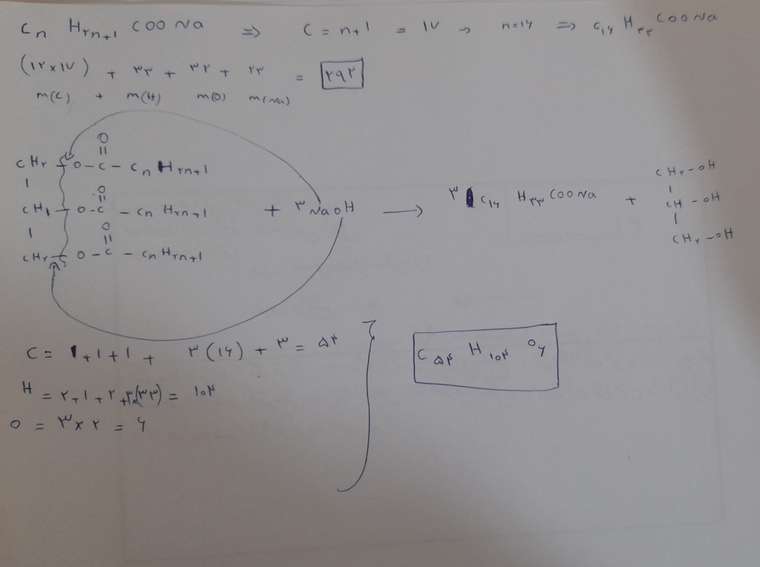 Cn H۲n+1 COONa ⇒ C = n+1 = ۱۷ → n=۱۶ ⇒ C۱۶ H۳۳ COONa
(۱۲×۱۷) + ۳۳ + ۳۲ + ۲۳ = ۲۹۲
m(C) + m(H) m(O) m(Na)
O
CH۲ — O — C — Cn H۲n+1
O
CH — O — C — Cn H۲n+1 + ۳NaOH → ۳ C۱۶ H۳۳ COONa +
O
CH۲ — O — C — Cn H۲n+1
CH۲ — OH
CH — OH
CH۲ — OH
C = 1+1+1 + ۳(۱۶) + ۳ = ۵۴
H = ۲+۱+۲+۳(۳۳) = ۱۰۴
O = ۳×۲ = ۶
C۵۴ H۱۰۴ O۶